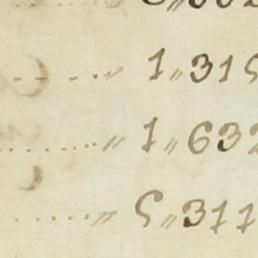 1,,315
1,,632
5,,311